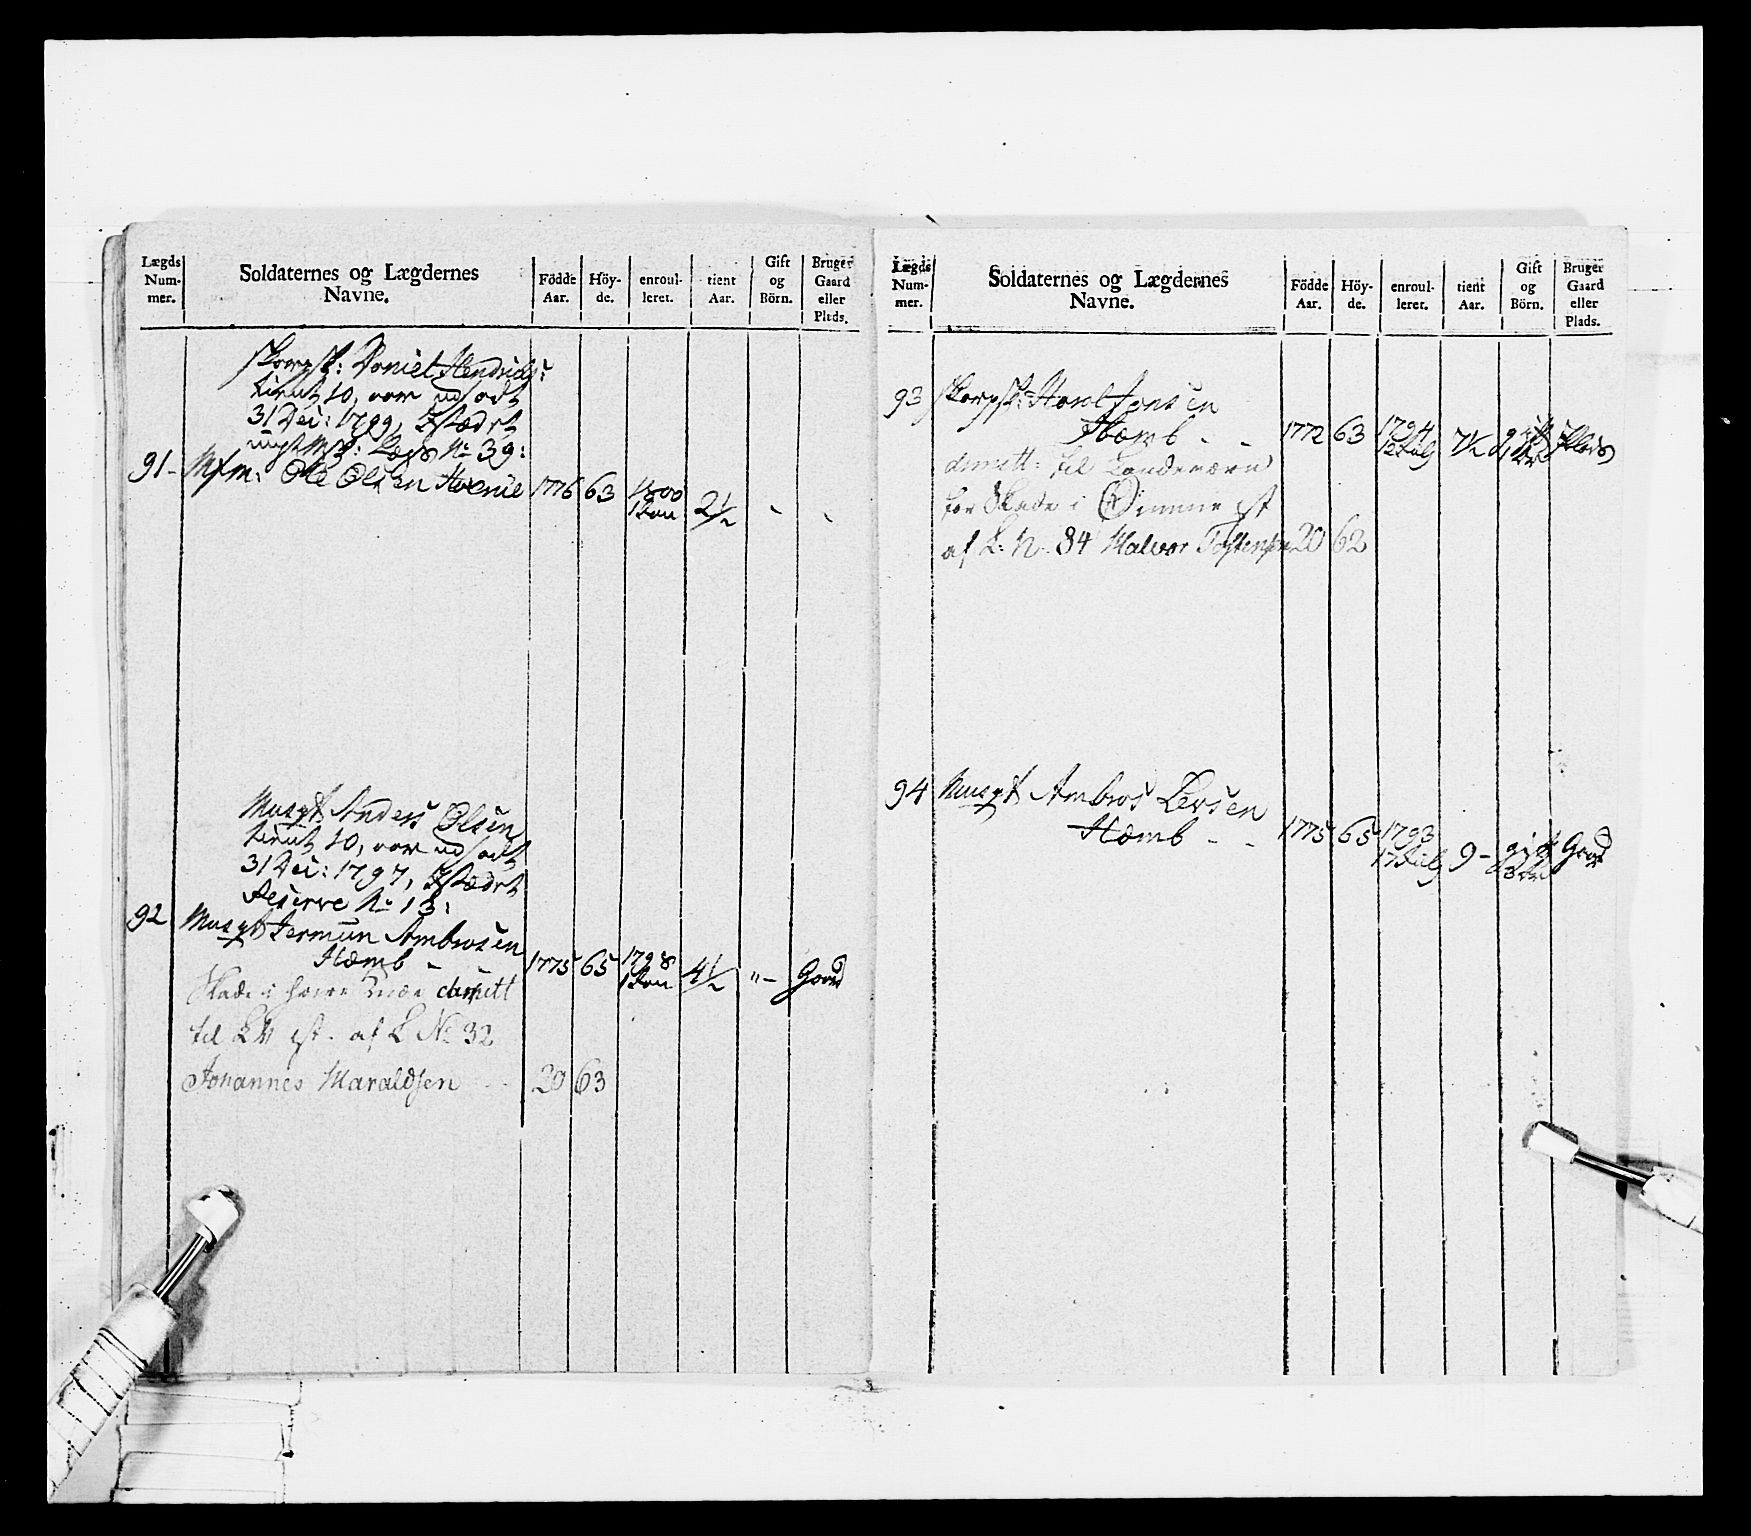 Lægds Num-mer. Soldaternes og Lægdernes Navne. Födde Aar. Höy-de. enroul-leret. tient Aar. Gift og Börn. Bruger Gaard eller Plads.
Skarpsk: Daniel Hendrichs:
tient 10, aar udsadt
31 Dec: 1799, Istædet
Lægd No 39:
91- Ole Olsen 1776 63 1800 1 Jan 2½
Musqt Anders Olsen
tient 10, aar udsadt
31 Dec: 1797, Istædet
Reserve No 13:
92 Musqt Iermun Ambrosen
Hæmb - 1775 65 1798 1 Jan 4½ " - Gaard
Skade i høire dimitt
til LW st. af L No 32
Johannes Haraldsen - - 20 63
Lægds Num-mer. Soldaternes og Lægdernes Navne. Födde Aar. Höy-de. enroul-leret. tient Aar. Gift og Börn. Bruger Gaard eller Plads.
93 Skarpsk: Jonsen
Hæmb - - 1772 63 1794 7½ gift Plads
dimitt: til Landeværn
for Skade i st
af L: N. 84 Halvor Tostensen 20 62
94 Musqt Ambros Larsen
Hæmb - - 1775 65 1793 9 - gift Gaard